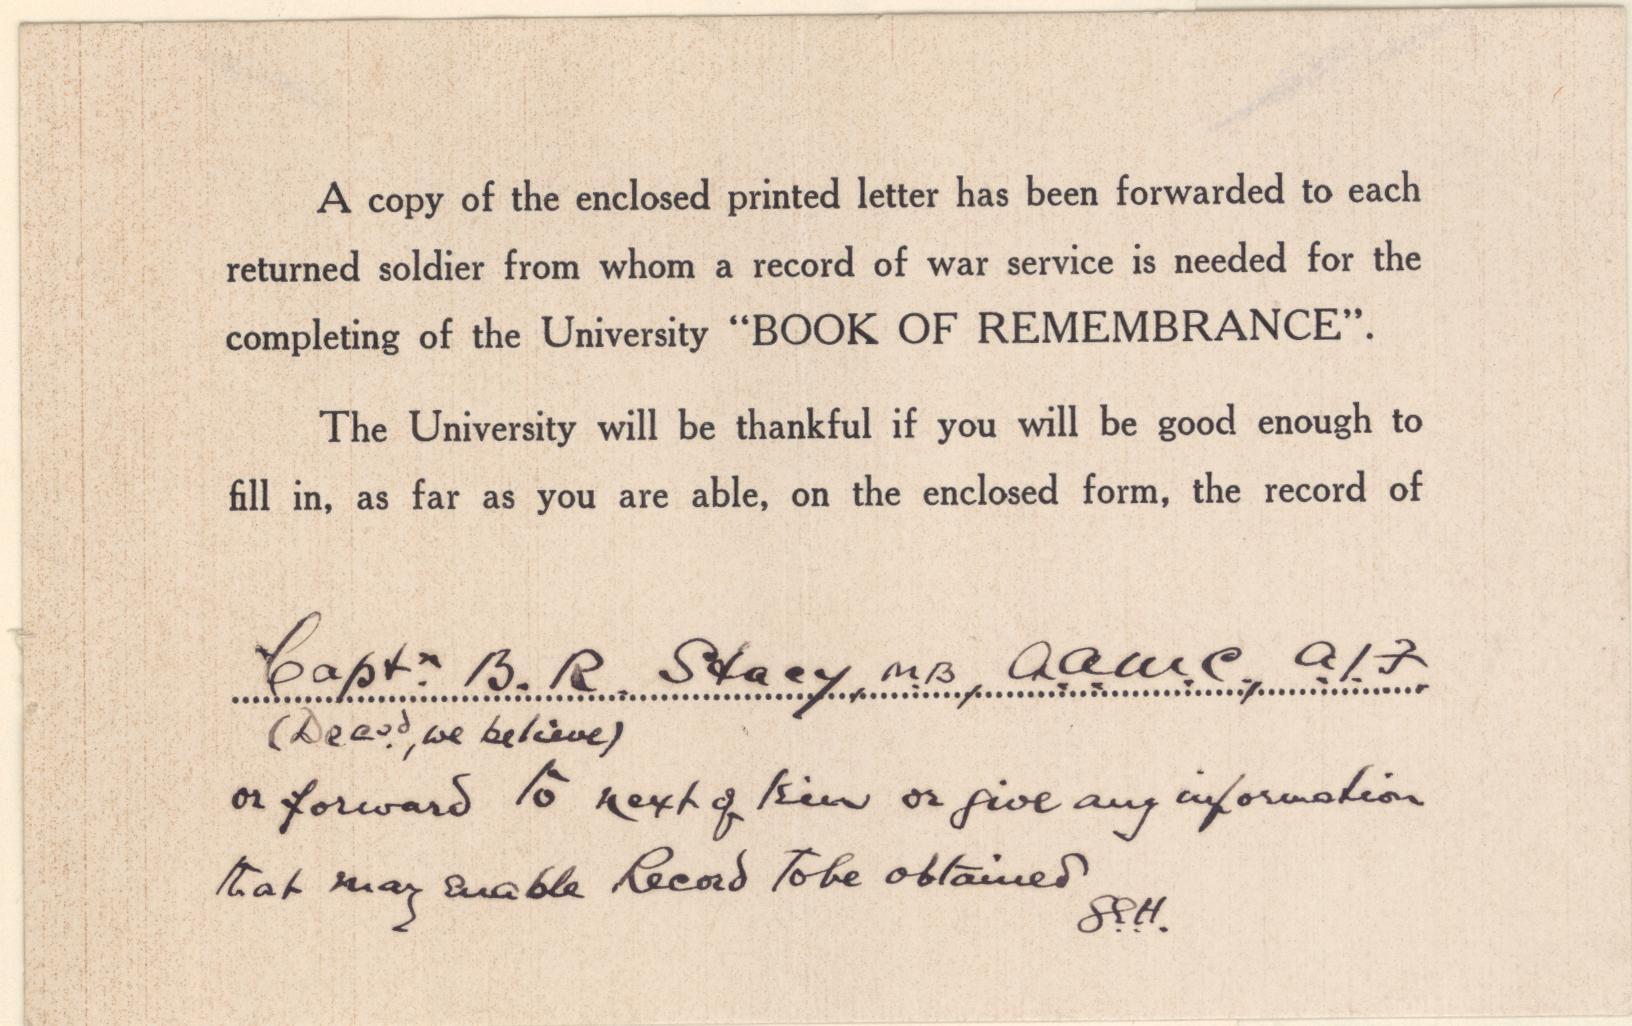 A copy of the enclosed printed letter has been forwarded to each
returned soldier from whom a record of war service is needed for the
completing of the University “BOOK OF REMEMBRANCE”.
The University will be thankful if you will be good enough to
fill in, as far as you are able, on the enclosed form, the record of
Captn. B. R. Stacy, M.B., A.A.M.C., A.I.F.
(Decsd., we believe)
or forward to next of kin or give any information
that may enable Record to be obtained
S.E.H.